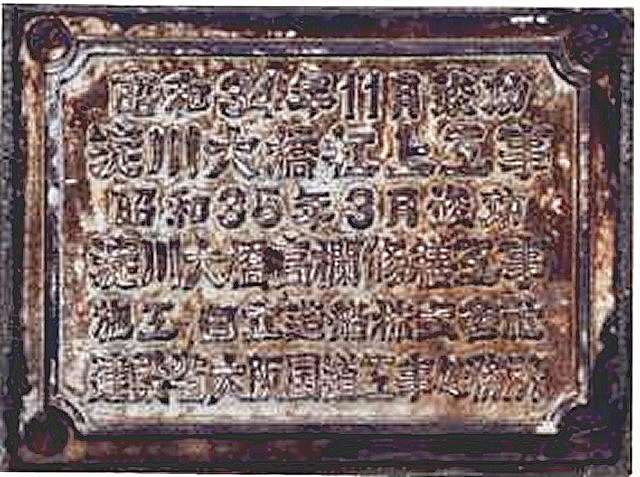 昭和34年11月竣功
淀川大橋扛上工事
昭和35年3月竣功
淀川大橋高欄修繕工事
施工 日立造船株式会社
建設省大阪国道工事事務所